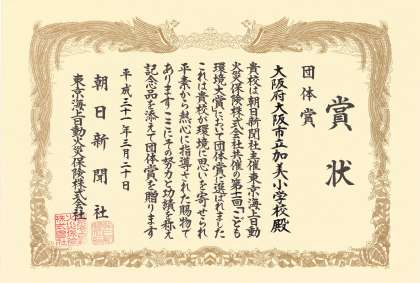 賞状
団体賞
大阪府大阪市立加美小学校殿
貴校は朝日新聞社主催東京海上日動
火災保険株式会社共催の第十一回「こども
環境大賞」において団体賞に選ばれました
これは貴校が環境に思いを寄せられ
平素から熱心に指導された賜物で
あります ここにその努力と功績を称え
記念品を添えて団体賞を贈ります
平成三十一年三月二十日
朝日新聞社
東京海上日動火災保険株式会社